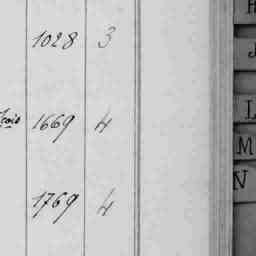 1028 3
1669 4
1769 4
L
M
N